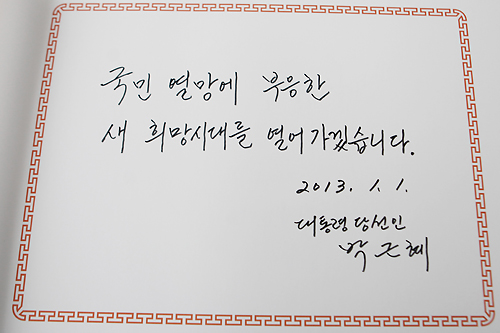 국민 열망에 부응한
새 희망시대를 열어가겠습니다.
2013. 1. 1.
대통령 당선인
박근혜